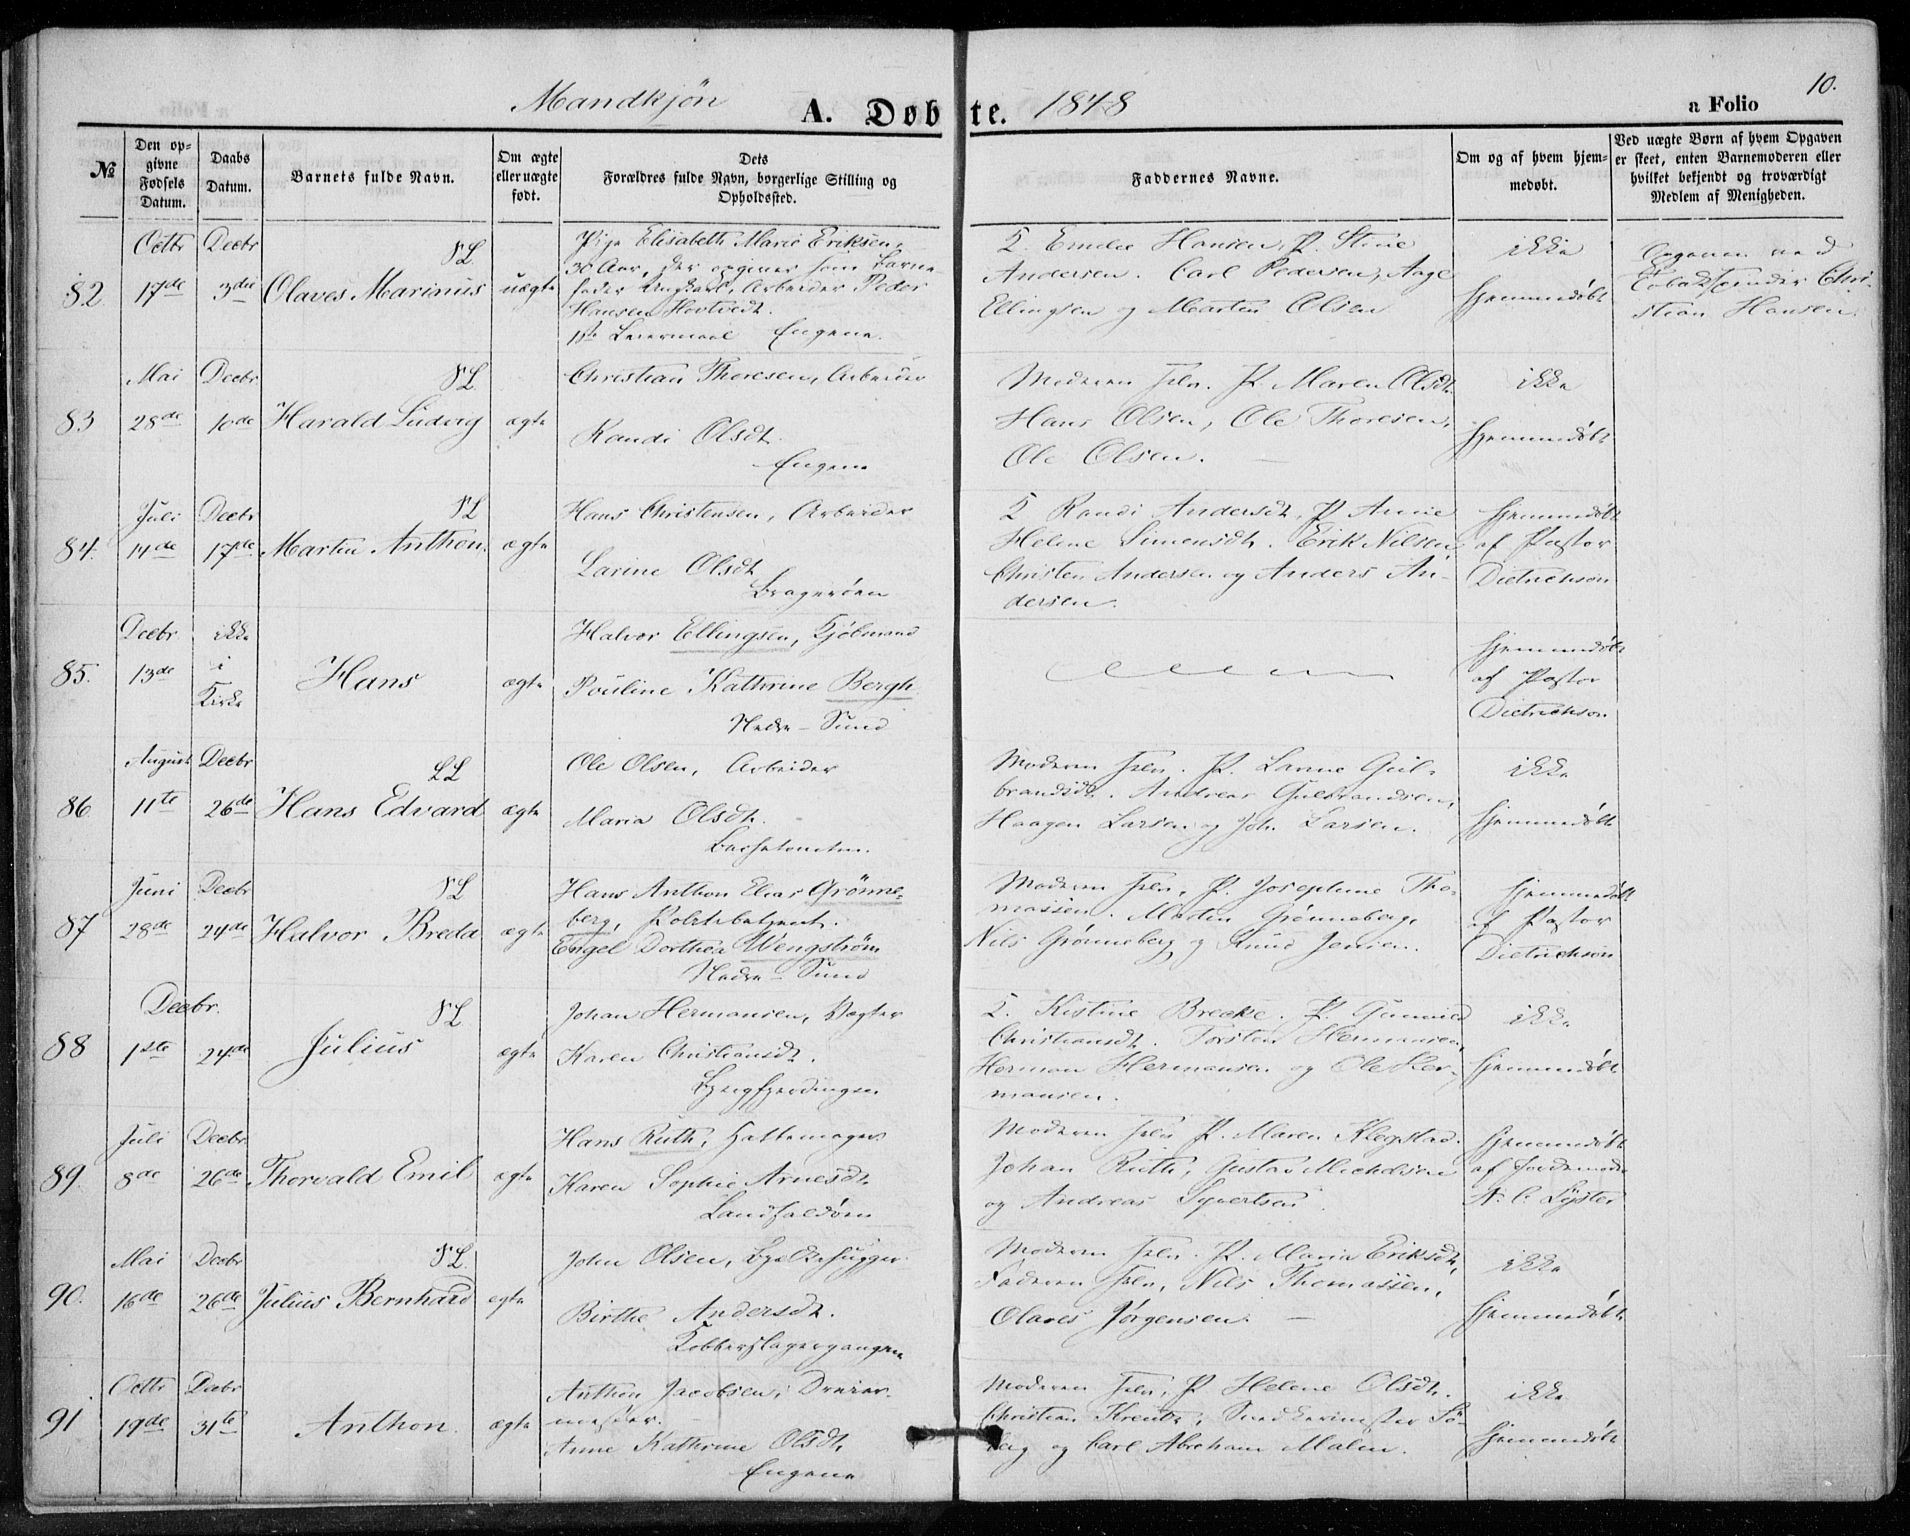 Mandkjön A. Døbte. 1848 a Folio 10.
№ | Den opgivne Fødsels Datum. | Daabs Datum. | Barnets fulde Navn. | Om ægte eller uægte født. | Dets Forældres fulde Navn, borgerlige Stilling og Opholdssted. | Faddernes Navne. | Om og af hvem hjemmedøbt. | Ved uægte Børn af hvem Opgaven er skeet, enten Barnemoderen eller hvilket bekjendt og troværdigt Medlem af Menigheden.
82 Octbr 17de Decbr 3die Olaves Marinus uægte
Pige Elisabeth Marie Eriksen,
30 Aar, der opgiver som Barne-
fader Ungkarl, Arbeider Peder
Hansen Hovtvedt.
1ste Leiermaal Engene.
Emilie Hansen, P. Stine
Andersen. Carl Pedersen, Aage
Ellingsen og Marten Olsen
ikke
hjemmedøbt
Opgaven ved
Tobakspinder Chri-
stian Hansen.
83 Mai 28de Decbr 10de Harald Ludvig ægte
Christian Thoresen, Arbeider
Randi Olsdt.
Engene
Moderen selv. P. Maren Olsdt.
Hans Olsen, Ole Thoresen,
Ole Olsen.
ikke
hjemmedøbt
84. Juli 14de Decbr 17de Martin Anthon. ægte
Hans Christensen, Arbeider
Larine Olsdt.
Bragerøen
Randi Andersdt. P. Anne
Helene Simensdt. Erik Nilsen,
Christen Andersen og Anders An-
dersen.
hjemmedøbt
af Pastor
Dietrichson
85. Decbr 13de ikke i Kirke Hans ægte
Halvor Ellingsen, Kjøbmand
Pouline Kathrine Bergh
Nedre-Sund
hjemmedøbt
af Pastor
Dietrichson
86 August 11te Decbr 26de Hans Edvard ægte
Ole Olsen, Arbeider
Maria Olsdt.
Moderen selv. P. Gul-
brandsdt. Andreas Gulbrandsen,
Haagen Larsen og Joh. Larsen.
ikke
hjemmedøbt
87 Juni 28de Decbr 24de Halvor Breda ægte
Hans Anthon Elias Grönne-
berg, Politibetjent.
Engel Dorthea Wengström
Nedre-Sund
Moderen selv, P. Josephine Tho-
massen. Martin Grønneberg,
Nils Grønneberg og Knud Jensen.
hjemmedøbt
af Pastor
Dietrichson
88 Decbr. 1ste 24de Julius ægte
Johan Hermansen, Vægter
Karen Christiansdt.
Kistine Brecke. P. Gunnild
Christiansdt. Torsten Hermansen,
Herman Hermansen og Ole Her-
mansen.
ikke
hjemmedøbt
89. Juli 8de Decbr. 26de Thorvald Emil ægte
Hans Ruth, Hattemager
Karen Sophie Arnesdt.
Landfaldöen
Moderen selv P. Maren Klegstad.
Johan Ruth, Gustav Michelsen
og Andreas Syvertsen.
hjemmedøbt
af Jordemoder
Lyster
90. Mai 16de Decbr 26de Julius Bernhard ægte
John Olsen, Bjelkehugger
Birthe Andersdt.
Kobberslagergangen
Moderen selv. P. Maria Eriksdt.,
Faderen selv, Nils Thomassen,
Olaves Jørgensen.
ikke
hjemmedøbt
91 Octbr 19de Decbr 31te Anthon. ægte
Anthon Jacobsen, Dreier-
mester.
Anne Kathrine Olsdt.
Engene
Moderen selv, P. Helene Olsdt.
Christian Kreutz, Snedkermester Sö-
berg og Carl Abraham Malm.
ikke
hjemmedøbt